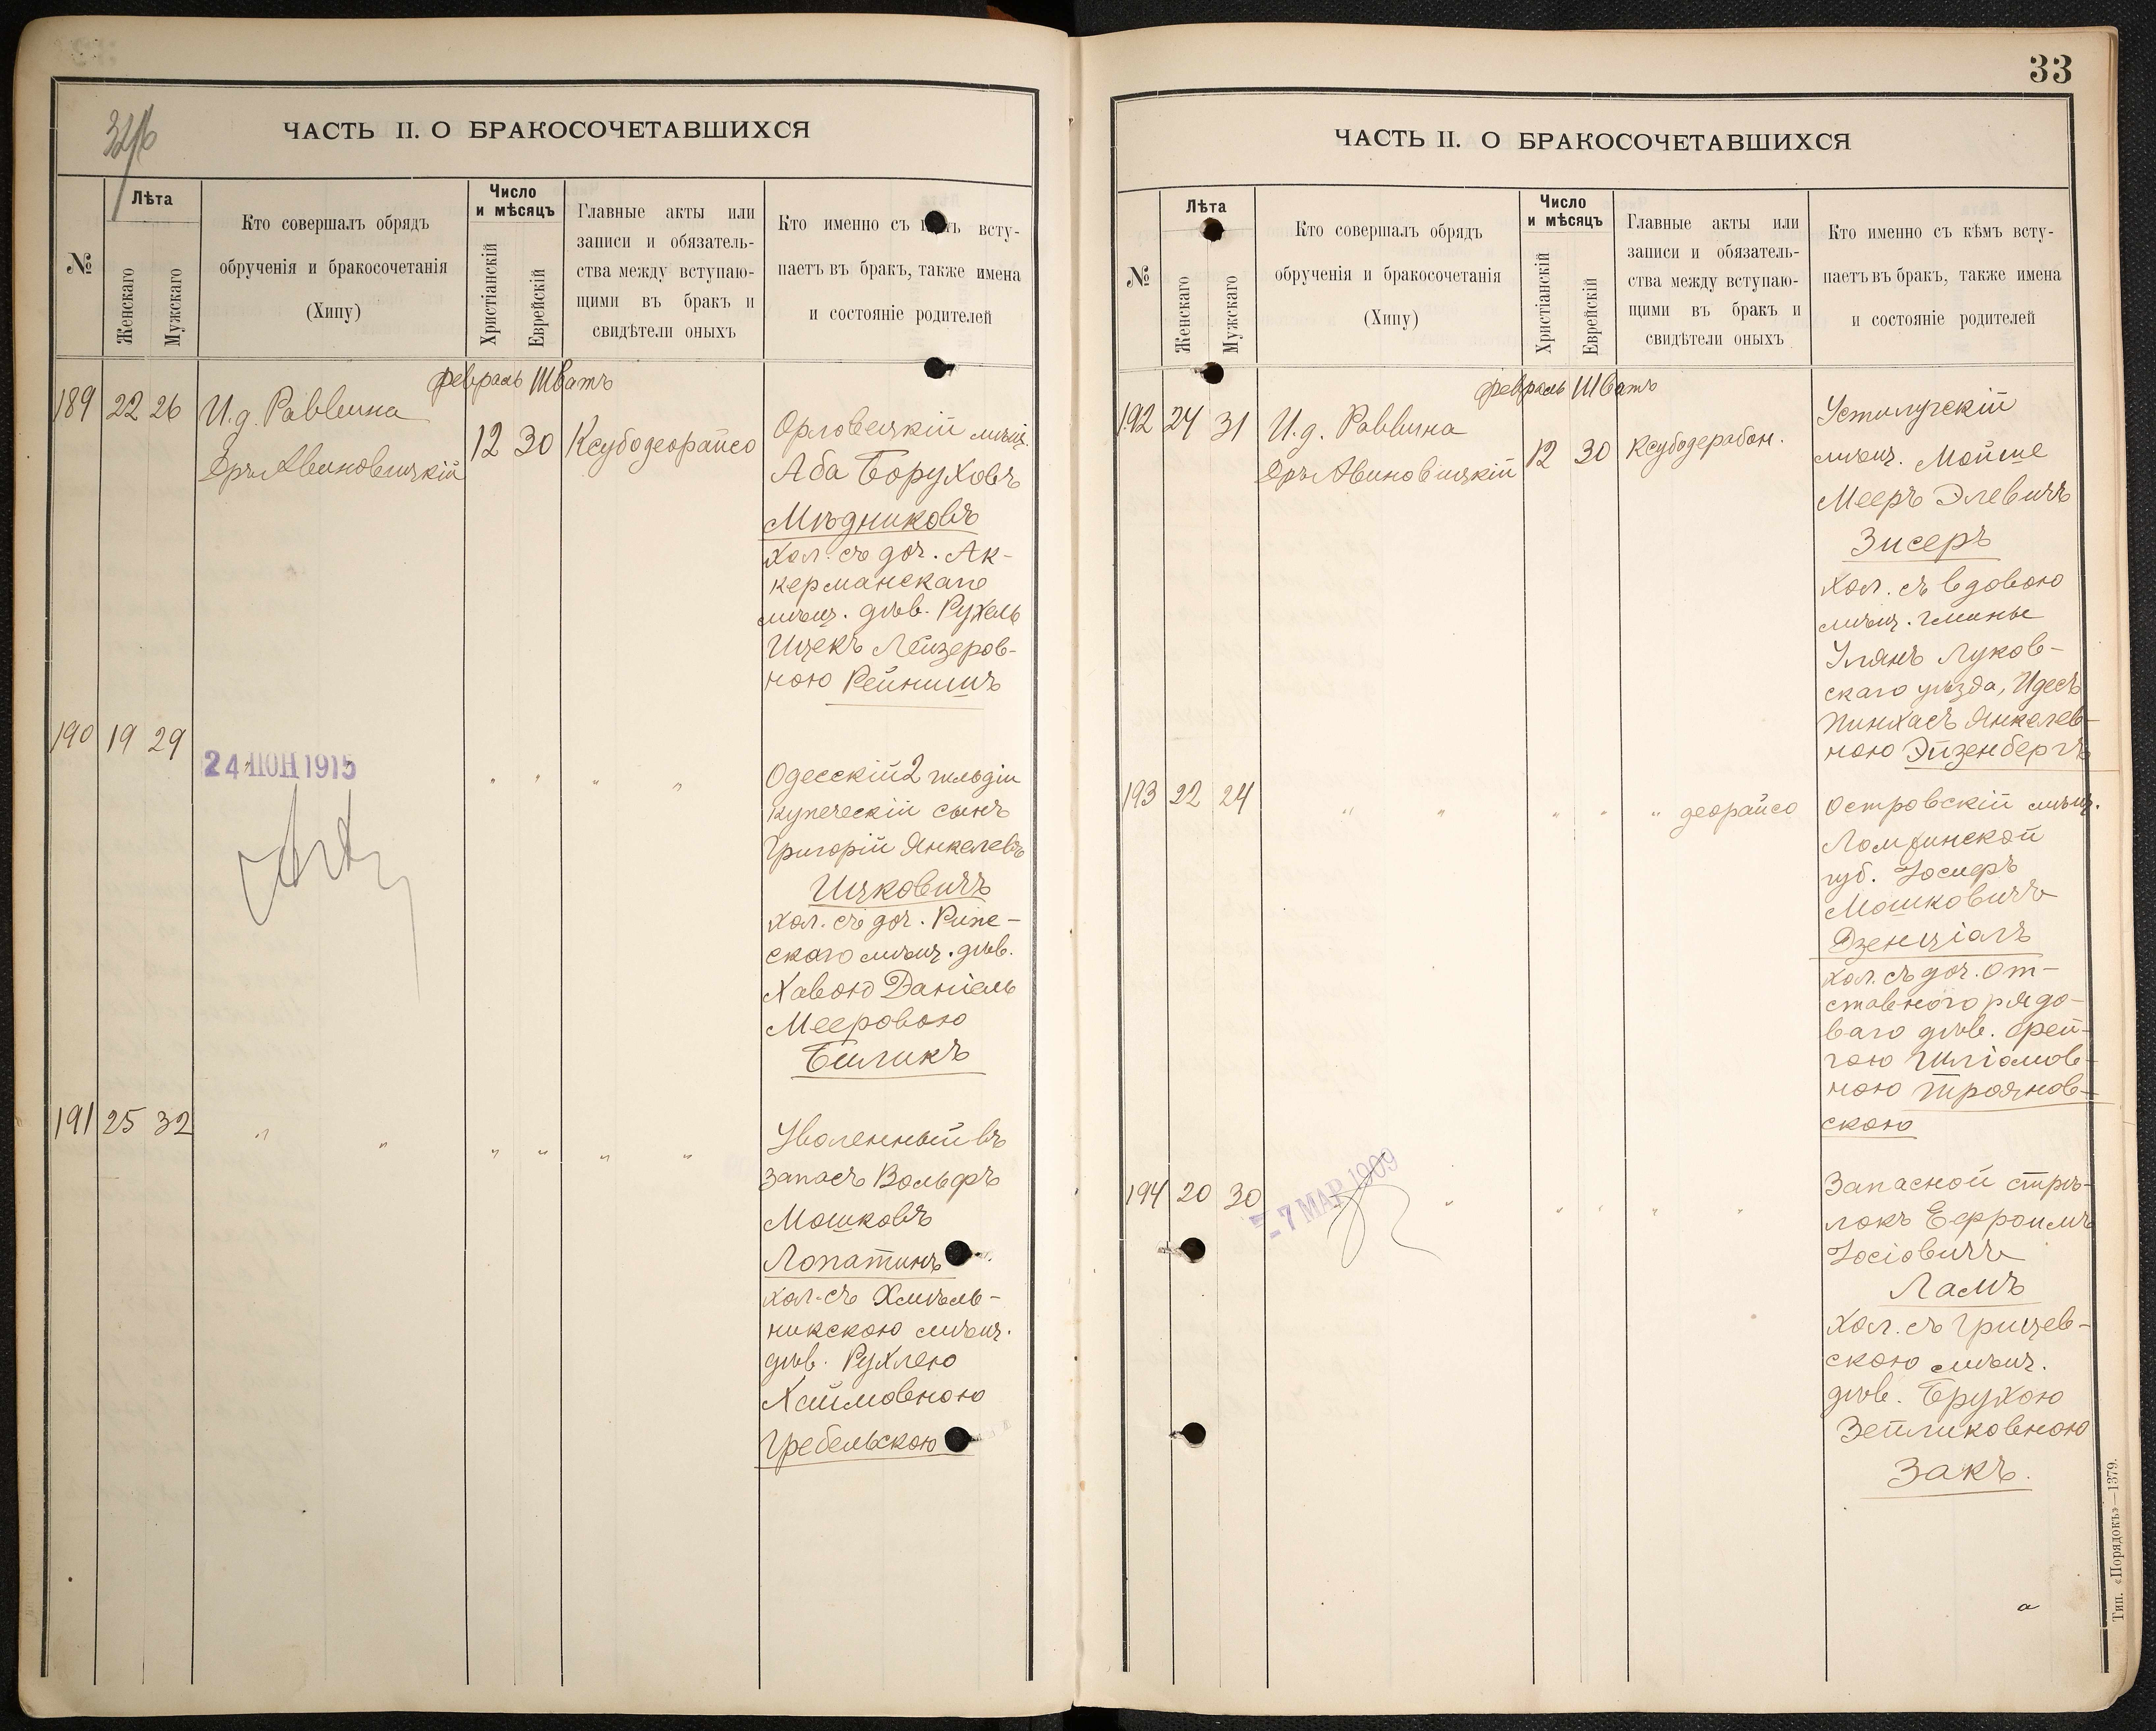 ЧАСТЬ II. О БРАКОСОЧЕТАВШИХСЯ
№
Лѣта
Женскаго
Мужскаго
Кто совершалъ обрядъ
обрученія и бракосочетанія
(Хипу)
Число
и мѣсяцъ
Христіанскій
Еврейскій
Главные акты или
записи и обязатель-
ства между вступаю-
щими въ бракъ и
свидѣтели оныхъ
Кто именно съ всту-
паетъ въ бракъ, также имена
и состояніе родителей
февраль Шватъ
189 22 26
И.д. Раввина
Дръ Авиновицкій
12 30 Ксубодеорайсо
Орловецкій мѣщ.
Аба Боруховъ
Мѣдниковъ
хол. съ доч. Ак-
керманскаго
мѣщ. дѣв. Рухель
Ицекъ Лейзеров-
ною Рейнишъ
190 19 29
24 ІЮН 1915
" " " "
Одесскій 2 гильдіи
купеческій сынъ
Григорій Янкелевъ
Ицковичъ
хол. съ доч. Риж-
скаго мѣщ. дѣв.
Хавою Даніель
Мееровою
Биликъ
191 25 32
" " " " " "
Уволенный въ
запасъ Вольфъ
Мошковъ
Лопатинъ
хол. съ Хмѣль-
никскою мѣщ.
дѣв. Рухлею
Хаимовною
Гребельскою
33
ЧАСТЬ II. О БРАКОСОЧЕТАВШИХСЯ
№
Лѣта
Женскаго
Мужскаго
Кто совершалъ обрядъ
обрученія и бракосочетанія
(Хипу)
Число
и мѣсяцъ
Христіанскій
Еврейскій
Главные акты или
записи и обязатель-
ства между вступаю-
щими въ бракъ и
свидѣтели оныхъ
Кто именно съ кѣмъ всту-
паетъ въ бракъ, также имена
и состояніе родителей
февраль Шватъ
192 24 31
И.д. Раввина
Дръ Авиновицкій
12 30 Ксубодерабон.
Устилугскій
мѣщ. Мойше
Мееръ Элевичъ
Зисеръ
хол. съ вдовою
мѣщ. гмины
Уланъ Луков-
скаго уѣзда, Идесъ
Пинхасъ Янкелев-
ною Эйзенбергъ
193 22 24
" " " " " деорайсо
Островскій мѣщ.
Ломжинской
губ. Іосифъ
Мошковичъ
Дзенціолъ
хол. съ доч. От-
ставного рядо-
ваго дѣв. Фрей-
гою Шліомов-
ною Трояновс-
скою
194 20 30
– 7 МАР 1909
" " " " "
Запасной стрѣ-
локъ Ефроимъ
Іосіовичъ
Ламъ
хол. съ Грицев-
скою мѣщ.
дѣв. Брухою
Зейликовною
Закъ.
Тип. «Порядокъ»—1379.